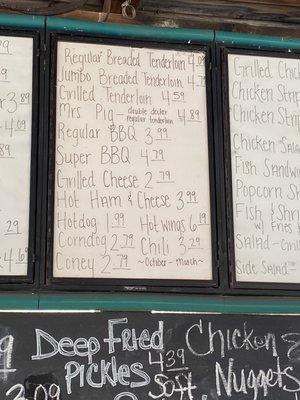 Regular Breaded Tenderloin 4.09
Jumbo Breaded Tenderloin 4.79
Grilled Tenderloin 4.59
Mrs Pig - double decker regular tenderloin 4.89
Regular BBQ 3.99
Super BBQ 4.79
Grilled Cheese 2.79
Hot Ham & Cheese 3.99
Hotdog 1.99 Hot wings 6.19
Corndog 2.79 Chili 3.29
Coney 2.79 ~October - March~
Grilled Chic
Chicken Strip
Chicken Strip
Chicken Salad
Fish Sandwi
Popcorn S
Fish & Shr
w/ Fries
Salad - Grill
Side Salad
Deep Fried Pickles 4.39
Chicken Nuggets
Soft
3.09